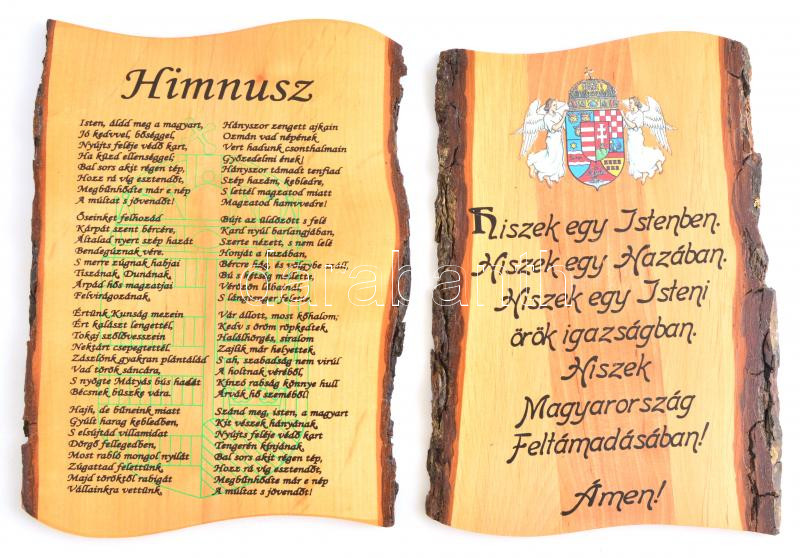 Himnusz
Isten, áldd meg a magyart,
Jó kedvvel, bőséggel,
Nyújts feléje védő kart,
Ha küzd ellenséggel;
Bal sors akit régen tép,
Hozz rá víg esztendőt,
Megbűnhődte már e nép
A múltat s jövendőt!
Őseinket felhozád
Kárpát szent bércére,
Általad nyert szép hazát
Bendegúznak vére.
S merre zúgnak habjai
Tiszának, Dunának,
Árpád hős magzatjai
Felvirágozának.
Értünk Kunság mezein
Ért kalászt lengettél,
Tokaj szőlővesszein
Nektárt csepegtettél.
Zászlónk gyakran plántálád
Vad török sáncára,
S nyögte Mátyás bús hadát
Bécsnek büszke vára.
Hajh, de bűneink miatt
Gyúlt harag kebledben,
S elsújtád villamidat
Dörgő fellegedben,
Most rabló mongol nyilát
Zúgattad felettünk,
Majd töröktől rabigát
Vállainkra vettünk,
Hányszor zengett ajkain
Ozmán vad népének
Vert hadunk csonthalmain
Győzedelmi ének!
Hányszor támadt tenfiad
Szép hazám, kebledre,
S lettél magzatod miatt
Magzatod hamvvedre!
Bújt az üldözött s felé
Kard nyúl barlangjában,
Szerte nézett, s nem lelé
Honját a hazában.
Bércre hág, és völgybe száll,
Bú s kétség mellette,
Vérözön lábainál,
S lángtenger felette.
Vár állott, most kőhalom;
Kedv s öröm röpkedtek,
Halálhörgés, siralom
Zajlik már helyettek.
S ah, szabadság nem virúl
A holtnak véréből,
Kínzó rabság könnye hull
Árvák hő szeméből!
Szánd meg, isten, a magyart
Kit vészek hányának,
Nyújts feléje védő kart
Tengerén kínjának.
Bal sors akit régen tép,
Hozz rá víg esztendőt,
Megbűnhődte már e nép
A múltat s jövendőt!
Hiszek egy Istenben.
Hiszek egy Hazában.
Hiszek egy Isteni
örök igazságban.
Hiszek
Magyarország
Feltámadásában!
Ámen!
darabanth